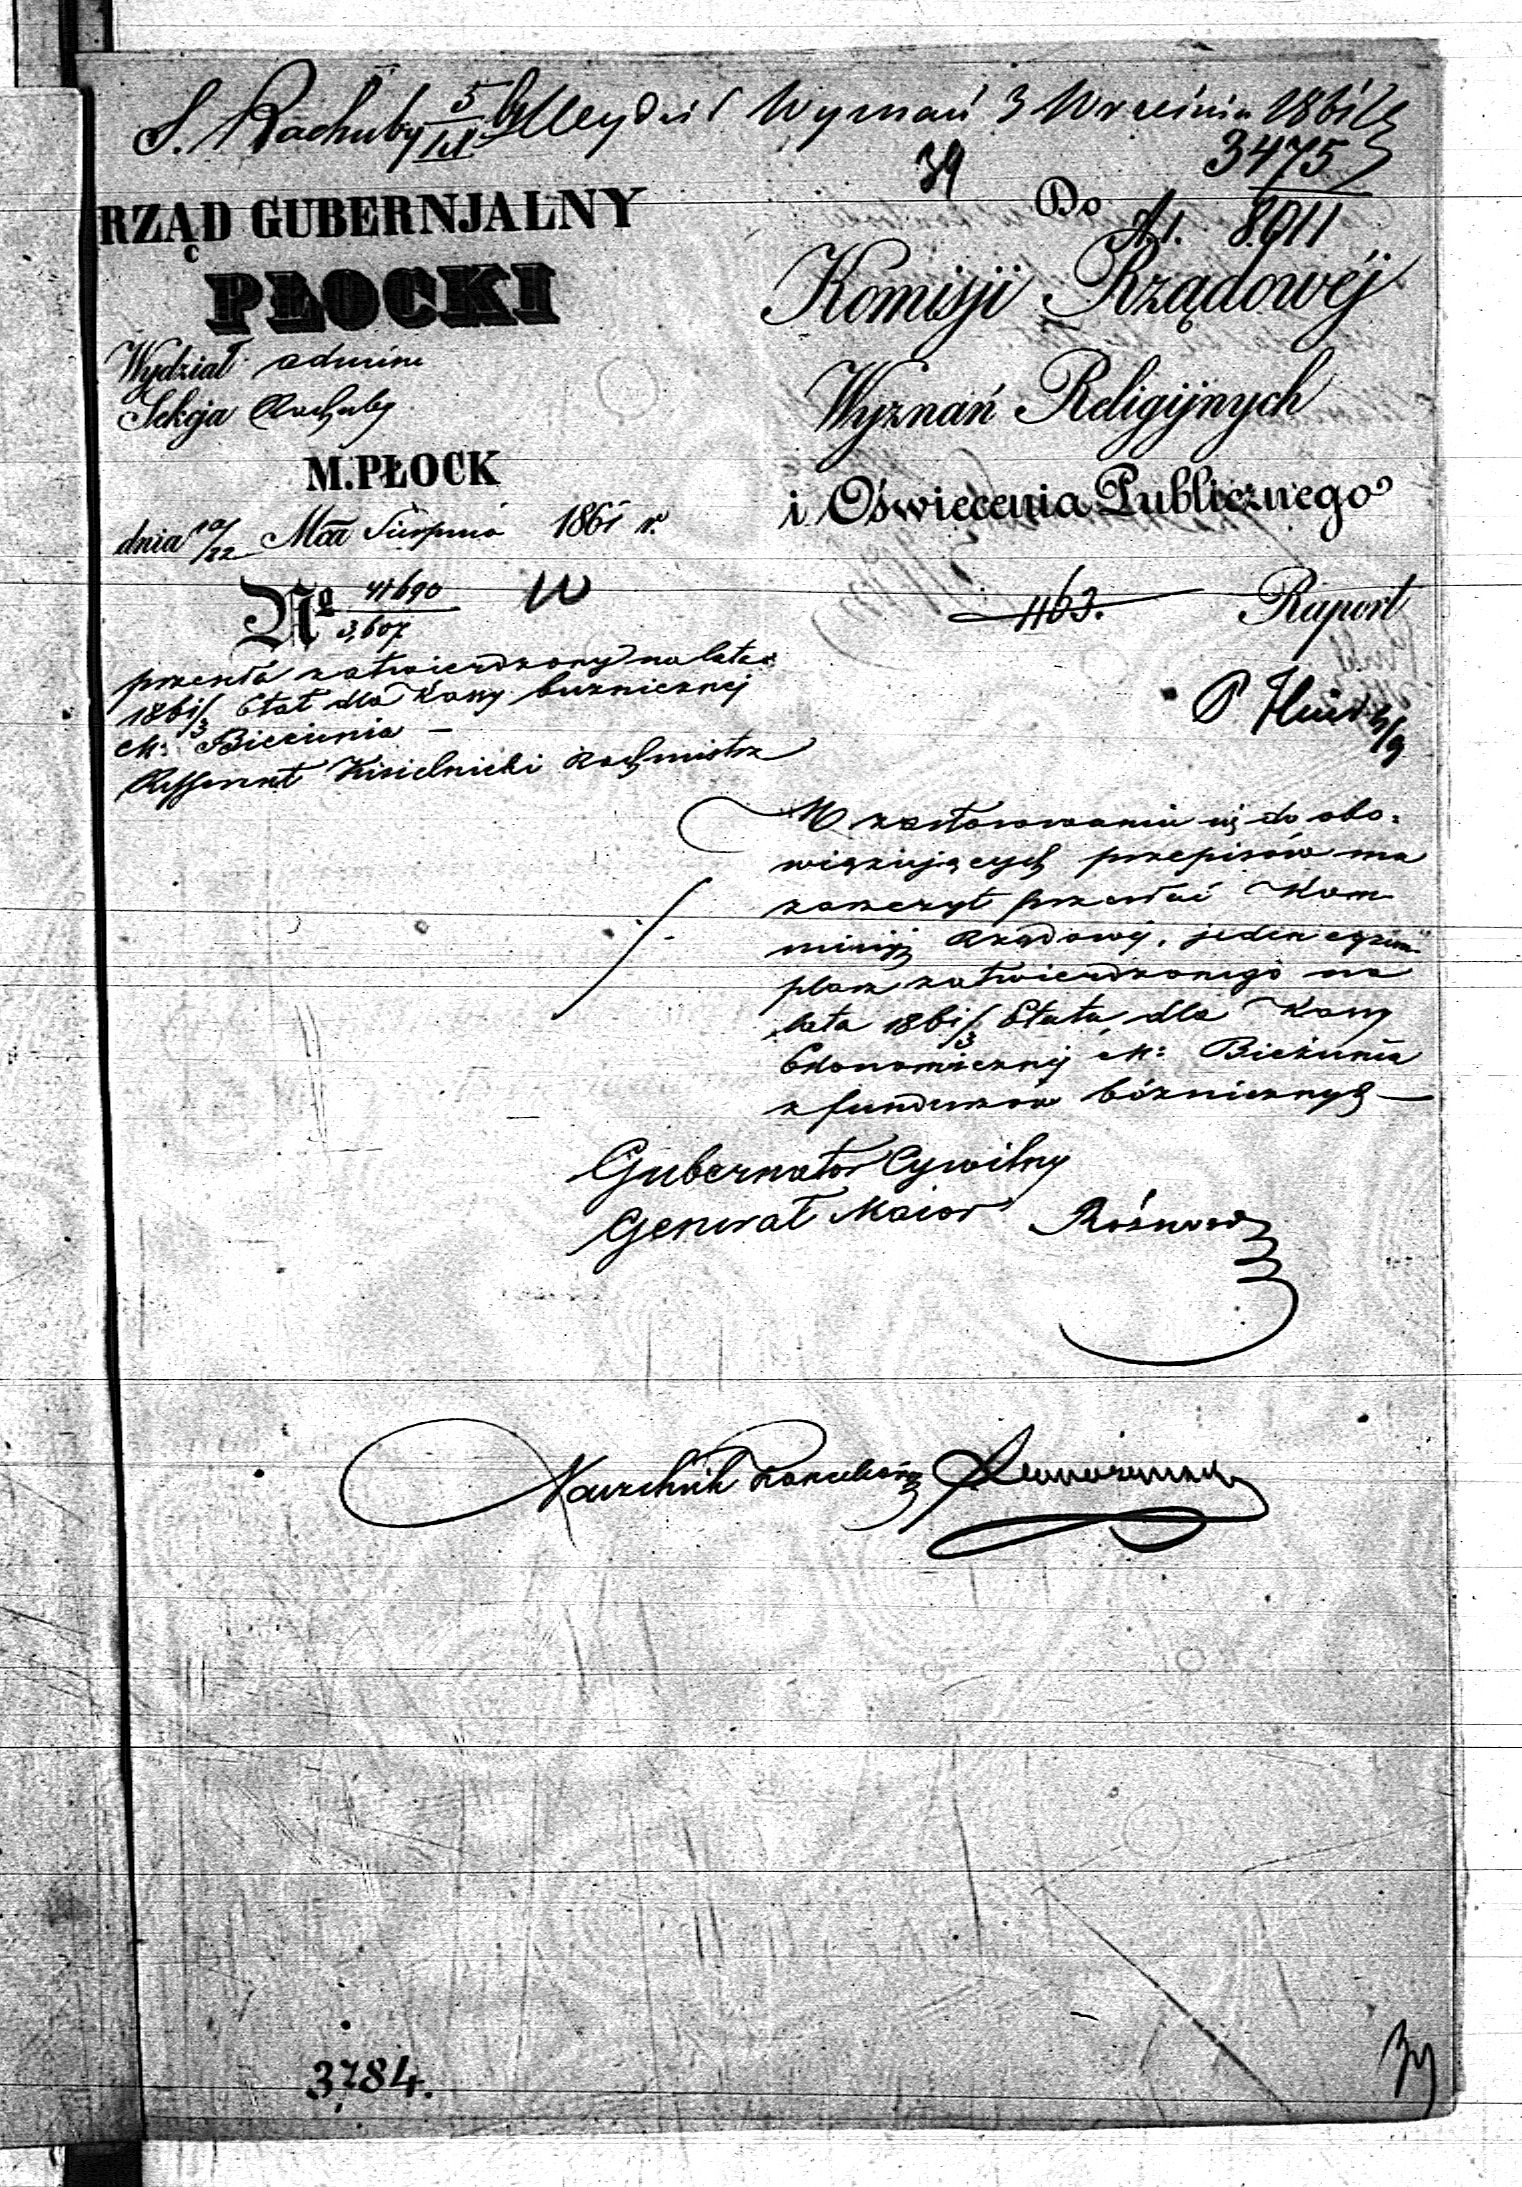 S. Rachuby 5/IX Wyznań 3 Września 1861
39
3475
8011
RZĄD GUBERNJALNY
PŁOCKI
Wydział admin
Sekcja Rachuby
M. PŁOCK
dnia 10/22 Mca Sierpnia 1861 r.
Nº 41690
3,607
przesyła zatwierdzony na lata
1861/3 Etat dla Kassy bużnicznej
M: Bieżunia —
Refferent Kisielnicki Rachmistrz
Do
Komisji Rządowéj
Wyznań Religijnych
i Oświecenia Publicznego
1163.
Raport
W zastosowaniu się do obo=
wiązujących przepisów ma
zaszczyt przesłać Kom
missyi Rządowej, jeden egzem
plarz zatwierdzonego na
lata 1861/3 Etatu dla Kassy
Ekonomicznej M: Bieżunia
z funduszów bóżnicznych —
Gubernator Cywilny
Generał Maior
Naczelnik Kancelarji
3784.
39